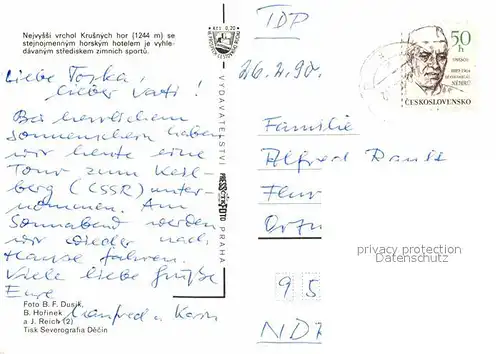 Nejvyšší vrchol Krušných hor (1244 m) se
stejnojmenným horským hotelem je vyhle-
dávaným střediskem zimních sportů.
Liebe Toska,
lieber Vati!
Bei herrlichem
Sonnenschein haben
wir heute eine
Tour zum Keil-
berg (CSSR) unter-
nommen. Am
Sonnabend werden
wir wieder nach
Hause fahren.
Viele liebe Grüße
Eure
Manfred u. Karin
Foto B. F. Dusík,
B. Hořínek
a J. Reich (2)
Tisk Severografia Děčín
VYDAVATELSTVÍ PRESSFOTO PRAHA
TDP
26.2.90.
50 h
UNESCO
1889-1964
NÉHRÚ
ČESKOSLOVENSKO
Familie
Alfred
Flur
95
privacy protection
Datenschutz Ansichtskarten